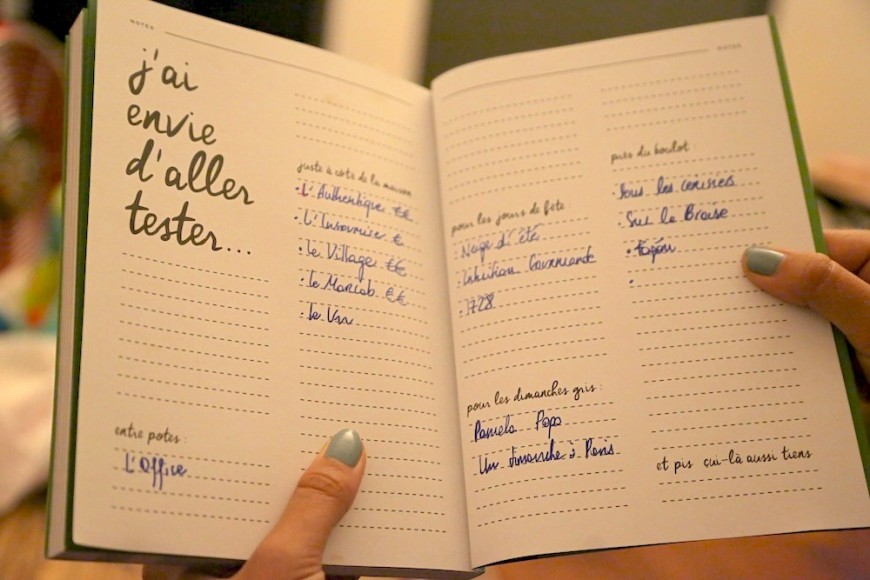 NOTES
j'ai
envie
d'aller
tester...
entre potes :
L'Office
juste à côté de la maison
• L'Authentique €€
• L'Insomnise €
• le Village €€
• le Marcab €€
• le Vin
NOTES
pour les jours de fête :
Neige d'été
Intuition Gourmande
• 1728
pour les dimanches gris :
Pamela Popo
Un dimanche à Paris
près du boulot :
Sous les cerisiers
• Sur la Braise
•
et pis cui-là aussi tiens